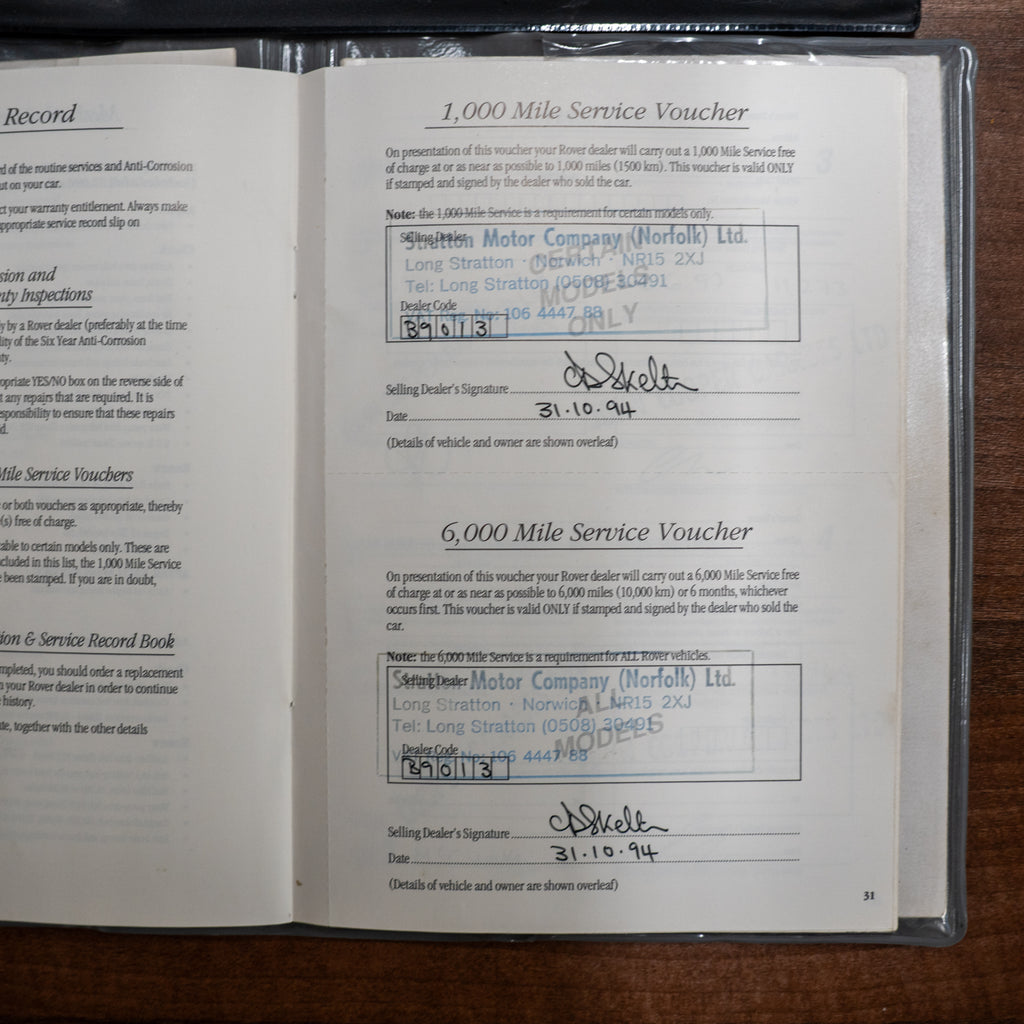 Record
d of the routine services and Anti-Corrosion
ut on your car.
ct your warranty entitlement. Always make
ppropriate service record slip on
sion and
nty Inspections
y by a Rover dealer (preferably at the time
lity of the Six Year Anti-Corrosion
ty.
opriate YES/NO box on the reverse side of
t any repairs that are required. It is
sponsibility to ensure that these repairs
d.
Mile Service Vouchers
or both vouchers as appropriate, thereby
(s) free of charge.
able to certain models only. These are
cluded in this list, the 1,000 Mile Service
been stamped. If you are in doubt,
ion & Service Record Book
mpleted, you should order a replacement
your Rover dealer in order to continue
history.
te, together with the other details
1,000 Mile Service Voucher
On presentation of this voucher your Rover dealer will carry out a 1,000 Mile Service free
of charge at or as near as possible to 1,000 miles (1500 km). This voucher is valid ONLY
if stamped and signed by the dealer who sold the car.
Note: the 1,000 Mile Service is a requirement for certain models only.
Selling Dealer
Stratton Motor Company (Norfolk) Ltd.
Long Stratton · Norwich · NR15 2XJ
Tel: Long Stratton (0508) 30491
VAT Reg. No: 106 4447 88
CERTAIN
MODELS
ONLY
Dealer Code
B9013
Selling Dealer's Signature
Date 31.10.94
(Details of vehicle and owner are shown overleaf)
6,000 Mile Service Voucher
On presentation of this voucher your Rover dealer will carry out a 6,000 Mile Service free
of charge at or as near as possible to 6,000 miles (10,000 km) or 6 months, whichever
occurs first. This voucher is valid ONLY if stamped and signed by the dealer who sold the
car.
Note: the 6,000 Mile Service is a requirement for ALL Rover vehicles.
Selling Dealer
Stratton Motor Company (Norfolk) Ltd.
Long Stratton · Norwich · NR15 2XJ
Tel: Long Stratton (0508) 30491
VAT Reg. No: 106 4447 88
ALL
MODELS
Dealer Code
B9013
Selling Dealer's Signature
Date 31.10.94
(Details of vehicle and owner are shown overleaf)
31